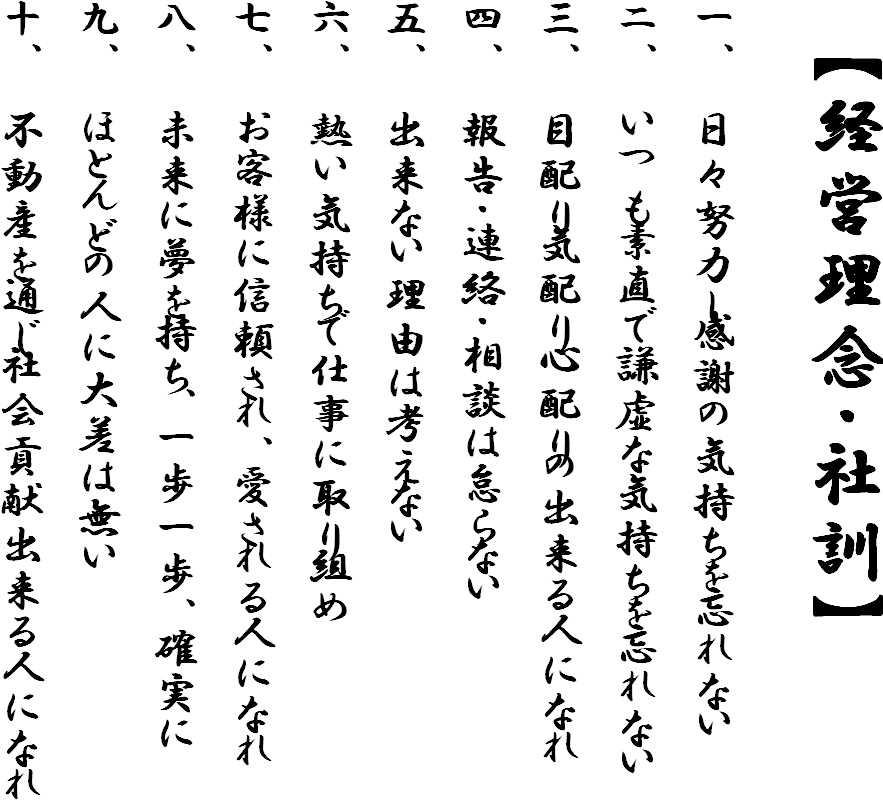 【経営理念・社訓】
一、日々努力し感謝の気持ちを忘れない
二、いつも素直で謙虚な気持ちを忘れない
三、目配り気配り心配りの出来る人になれ
四、報告・連絡・相談は怠らない
五、出来ない理由は考えない
六、熱い気持ちで仕事に取り組め
七、お客様に信頼され、愛される人になれ
八、未来に夢を持ち、一歩一歩、確実に
九、ほとんどの人に大差は無い
十、不動産を通じ社会貢献出来る人になれ